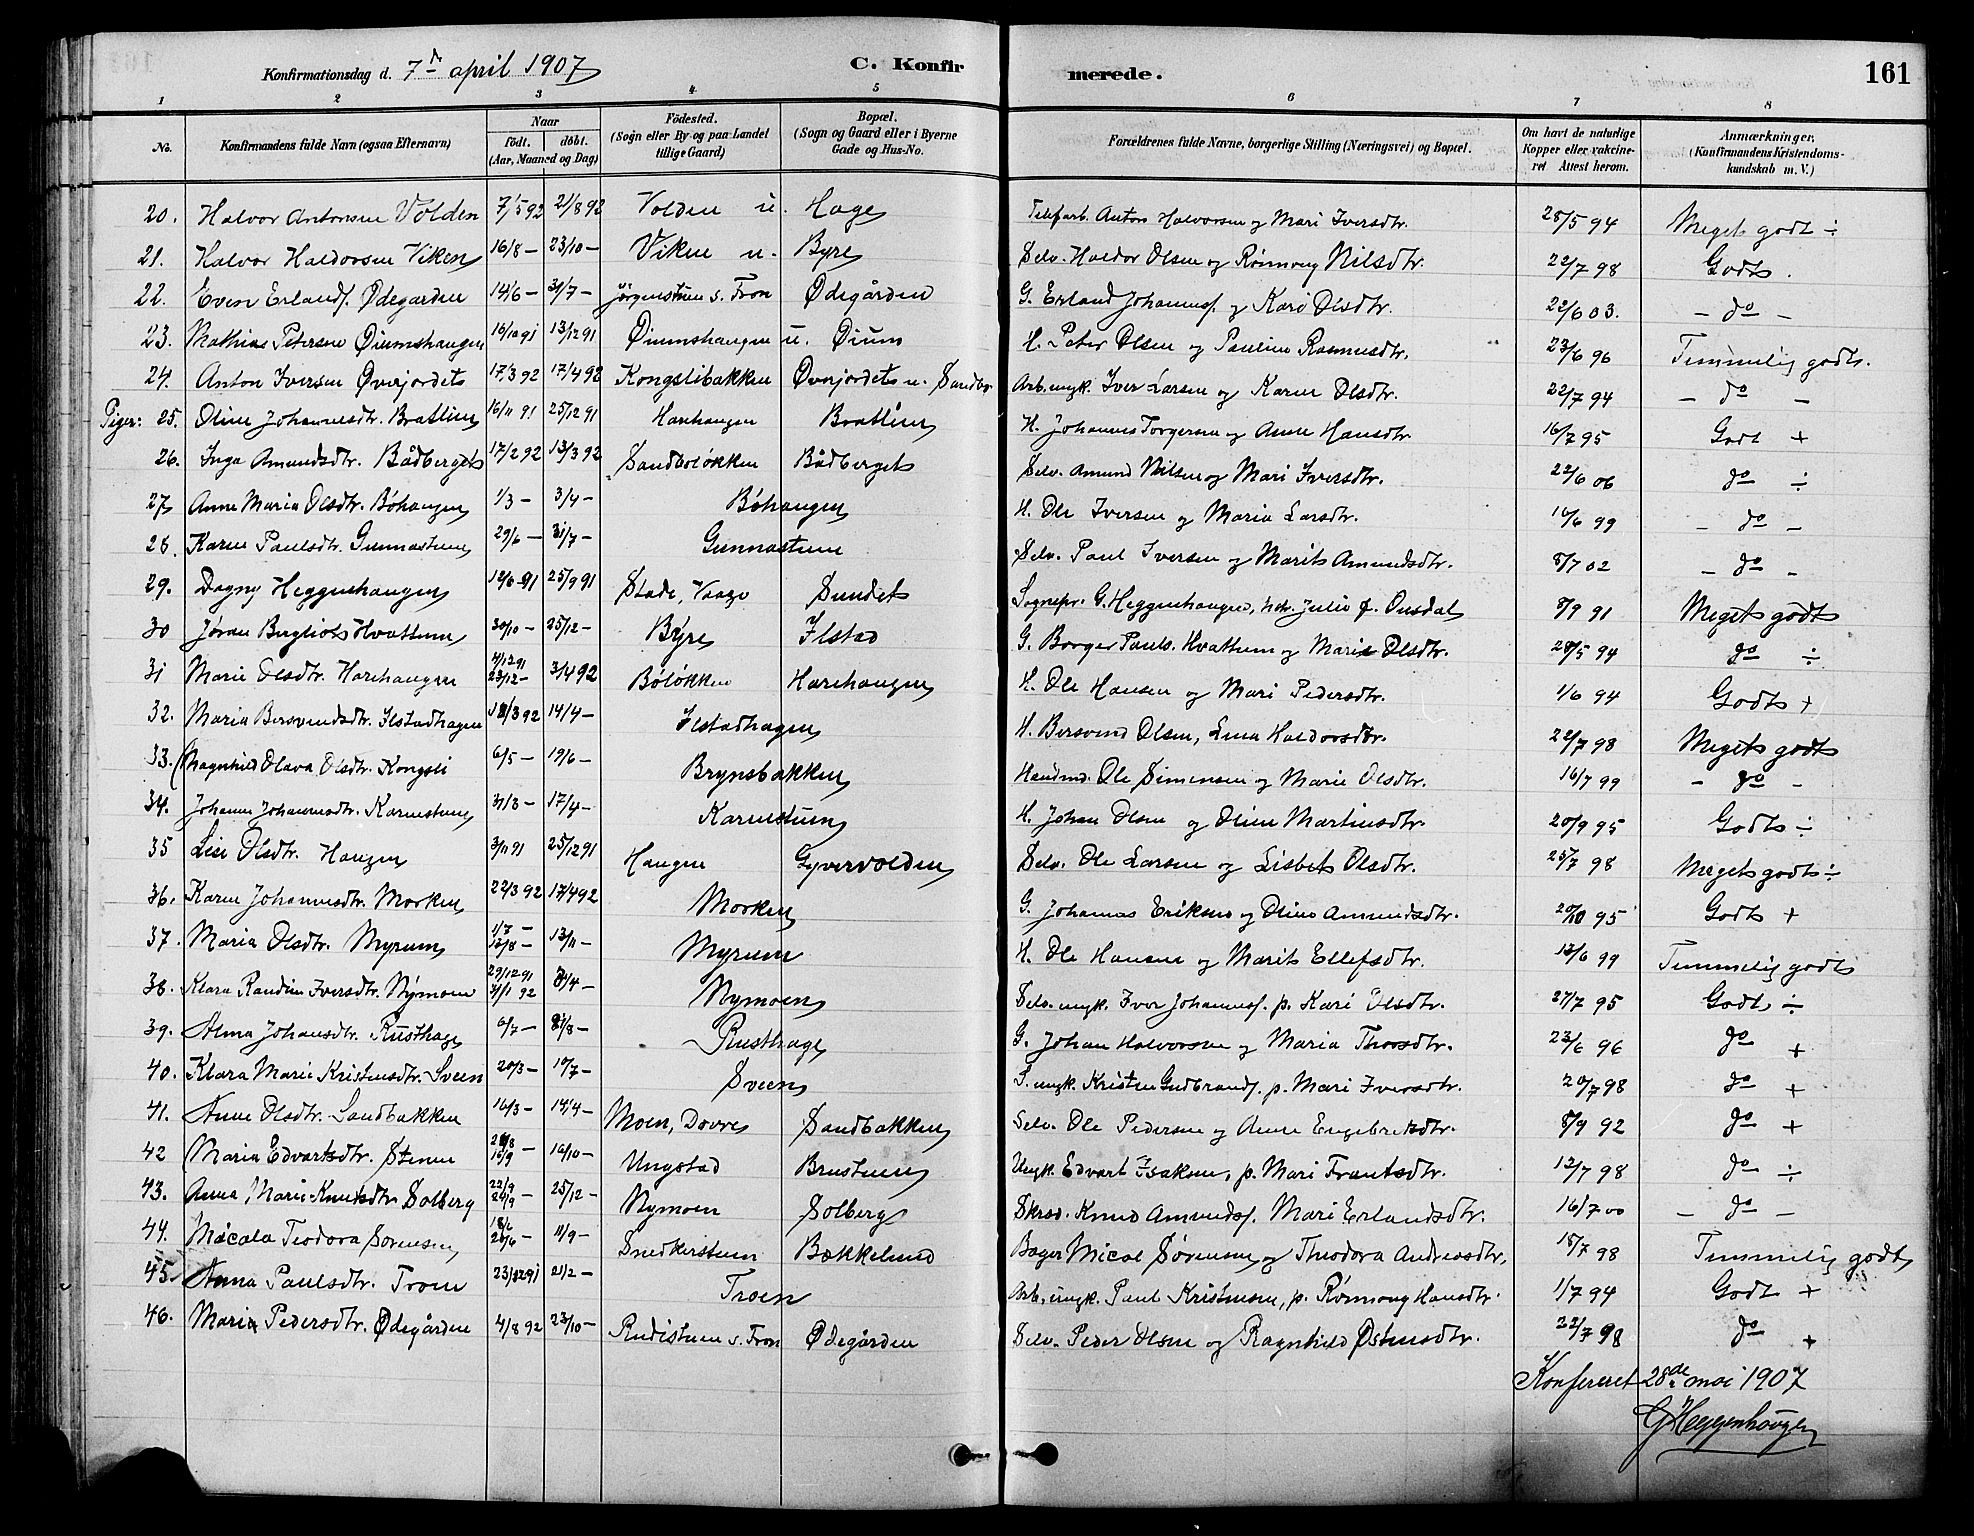 Konfirmationsdag d. 7d april 1907
C. Konfirmerede.
161
1 2 3 4 5 6 7 8
No. Konfirmandens fulde Navn (ogsaa Efternavn) Naar födt. döbt. (Aar, Maaned og Dag) Födested. (Sogn eller By og paa Landet tillige Gaard) Bopæl. (Sogn og Gaard eller i Byerne Gade og Hus-No. Forældrenes fulde Navne, borgerlige Stilling (Næringsvei) og Bopæl. Om havt de naturlige Kopper eller vakcineret Attest herom. Anmærkninger, (Konfirmandens Kristendomskundskab m. V.)
20. Halvor Antonsen Volden 7/5 92 21/8 92 Volden u. Hage Telefarb. Anton Halvorsen og Mari Iversdtr. 28/5 94 Meget godt ÷
21. Halvor Haldorsen Viken 16/8 – 23/10 – Viken u. Byre Selv. Haldor Olsen og Rønnoug Nilsdtr. 22/7 98 Godt.
22. Even Erlands. Ødegården 14/6 – 31/7 – Jørgenstuen s. Fron Ødegården G. Erland Johannes. og Kari Olsdtr. 22/6 03. – do –
23. Mathias Petersen Øiumshaugen 16/10 91 13/12 91 Øiumshaugen u. Øium H. Peter Olsen og Pauline Rasmusdtr. 23/6 96 Temmelig godt.
24. Anton Iversen Øverjordet 17/3 92 17/4 92 Kongslibakken Øverjordet u. Sandbo Arb. ungk. Iver Larsen og Karen Olsdtr. 22/7 94 – do –
Piger: 25. Oline Johannesdtr. Brattlien 16/11 91 25/12 91 Harehaugen Brattlien H. Johannes Torgersen og Anne Hansdtr. 16/7 95 Godt +
26. Inga Amundsdtr. Bådberget 17/2 92 13/3 92 Sandboløkken Bådberget Selv. Amund Nilsen og Mari Iversdtr. 22/6 06 do ÷
27 Anne Maria Olsdtr. Böhaugen 1/3 – 3/4 – Böhaugen H. Ole Iversen og Maria Larsdtr. 10/6 99 – do –
28. Karen Paulsdtr. Gunnastuen 29/6 – 31/7 – Gunnastuen Selv. Paul Iversen og Marit Amundsdtr. 8/7 02 – do –
29. Dagny Heggenhaugen 12/6 91 25/9 91 Stade, Vaage Sundet Sognepr. G. Heggenhaugen, Julie Onsdal 8/9 91 Meget godt
30 Jøran Bergliot Hvattum 30/10 – 25/12 – Byre Ilstad G. Borger Pauls. Hvattum og Marie Olsdtr. 28/5 94 do ÷
31 Marie Olsdtr. Harehaugen 4/12 91 23/12 – 3/4 92 Böløkken Harehaugen H. Ole Hansen og Mari Pedersdtr. 1/6 94 Godt +
32. Maria Bersvendsdtr. Ilstadhagen 18/3 92 14/4 – Ilstadhagen H. Bersvend Olsen, Lina Haldorsdtr. 22/7 98 Meget godt
33. Magnhild Olava Olsdtr. Kongsli 6/5 – 19/6 – Brynsbakken Handmd. Ole Simensen og Marie Olsdtr. 16/7 99 – do –
34. Johanne Johannesdtr. Karnestuen 31/3 – 17/4 – Karnestuen H. Johan Olsen og Oline Martinsdtr. 20/9 95 Godt ÷
35 Lise Olsdtr. Haugen 3/11 91 25/12 91 Haugen Gyvervolden Selv. Ole Larsen og Lisbet Olsdtr. 25/7 98 Meget godt ÷
36. Karen Johannesdtr. Morken 22/3 92 17/4 92 Morken G. Johannes Eriksen og Oline Amundsdtr. 20/10 95 Godt +
37. Maria Olsdtr. Myrum 1/7 – 12/8 – 13/11 – Myrum H. Ole Hansen og Marit Ellefsdtr. 13/6 99 Temmelig godt
38. Klara Randine Iversdtr. Nymoen 29/12 91 31/1 92 24/4 – Nymoen Selv. ungk. Iver Johannes. p. Kari Olsdtr. 27/7 95 Godt ÷
39. Alma Johansdtr. Rusthage 6/7 – 21/8 – Rusthage G. Johan Halvorsen og Maria Thorsdtr. 23/6 96 do +
40. Klara Marie Kristensdtr. Sveen 20/3 – 10/7 – Sveen S. ungk. Kristen Gudbrands. p. Mari Iversdtr. 20/7 98 do +
41. Anne Olsdtr. Sandbakken 16/3 – 14/4 – Moen, Dovre Sandbakken Selv. Ole Pedersen og Anne Engebretsdtr. 8/9 92 do +
42 Maria Edvartsdtr. Stene 10/9 – 16/10 – Ungstad Brustuen Ungk. Edvart Isaksen, p. Mari Frantsdtr. 12/7 98 do ÷
43. Anna Marie Knutsdtr. Solberg 22/9 24/9 – 25/12 – Nymoen Solberg Skræd. Knud Amunds. Mari Erlandsdtr. 16/7 00 – do –
44. Micala Teodora Sørensen 18/6 26/6 – 11/9 – Snedkerstuen Bækkelund Bager Mical Sørensen og Theodora Andreasdtr, 18/7 98 Temmelig godt
45 Anna Paulsdtr. Troen 23/12 91 21/2 – Troen Arb. ungk. Paul Kristensen, p. Rønnoug Hansdtr. 1/7 94 Godt +
46. Marie Pedersdtr. Ødegården 4/8 92 23/10 – Rudistuen s. Fron Ødegården Selv. Peder Olsen og Ragnhild Østensdtr. 22/7 98 do +
Konfereret 28de mai 1907
G Heggenhougen